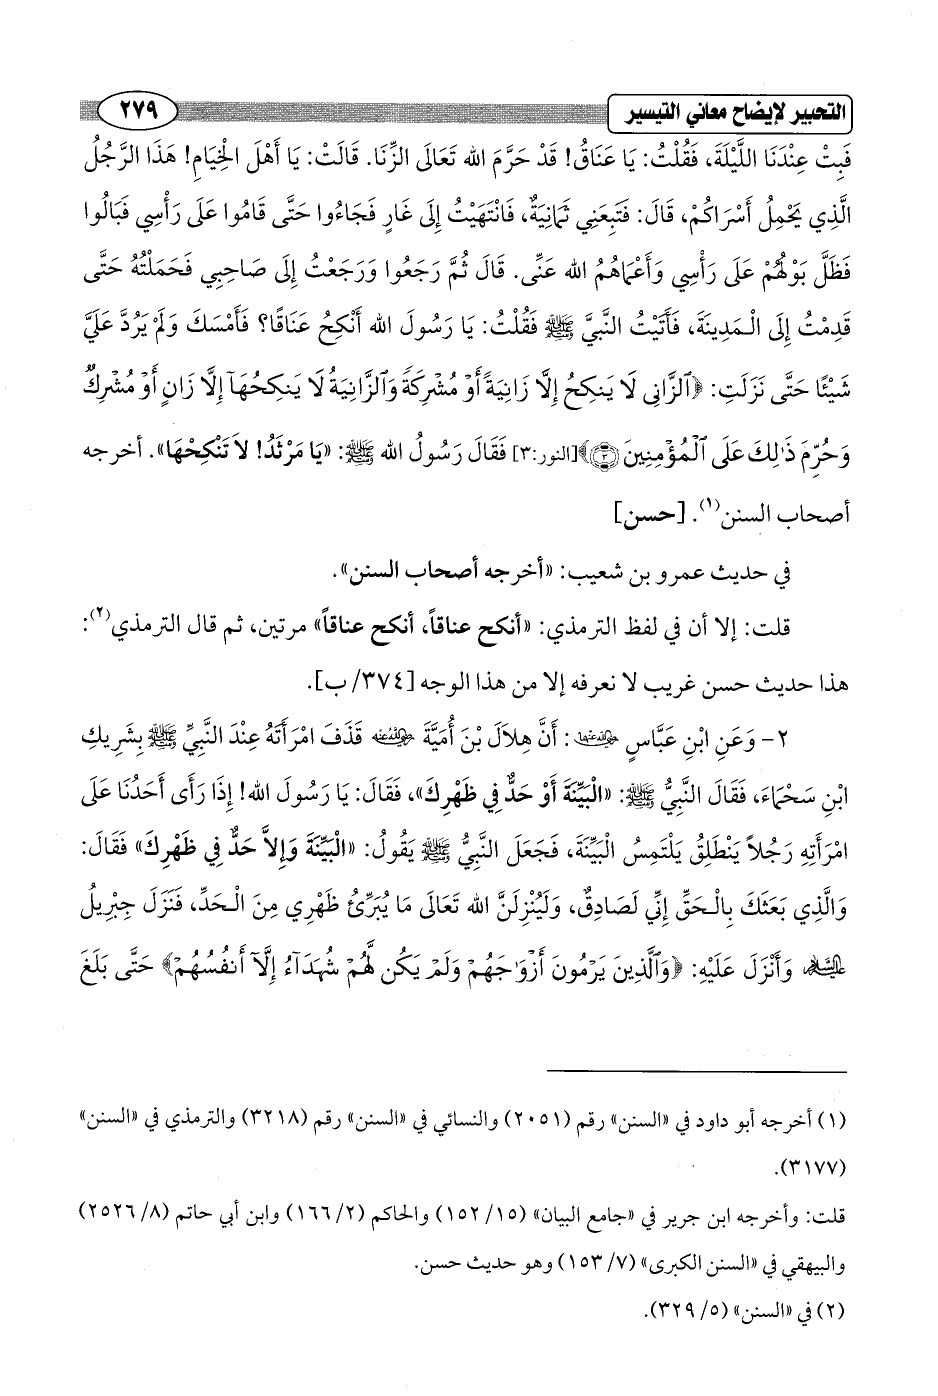 التحبير لإيضاح معاني التيسير
٢٧٩
فَبِتْ عِنْدَنَا اللَّيْلَةَ، فَقُلْتُ: يَا عَنَاقُ! قَدْ حَرَّمَ الله تَعَالَى الزِّنَا. قَالَتْ: يَا أَهْلَ الْخِيَامِ! هَذَا الرَّجُلُ
الَّذِي يَحْمِلُ أَسْرَاكُمْ، قَالَ: فَتَبِعَنِي ثَمَانِيَةٌ، فَانْتَهَيْتُ إِلَى غَارٍ فَجَاءُوا حَتَّى قَامُوا عَلَى رَأْسِي فَبَالُوا
فَظَلَّ بَوْلُهُمْ عَلَى رَأْسِي وَأَعْمَاهُمُ الله عَنِّى. قَالَ ثُمَّ رَجَعُوا وَرَجَعْتُ إِلَى صَاحِبِي فَحَمَلْتُهُ حَتَّى
قَدِمْتُ إِلَى الْـمَدِينَةَ، فَأَتَيْتُ النَّبِيَّ ﷺ فَقُلْتُ: يَا رَسُولَ الله أَنْكِحُ عَنَاقًا؟ فَأَمْسَكَ وَلَمْ يَرُدَّ عَلَيَّ
شَيْئًا حَتَّى نَزَلَتِ: ﴿ٱلزَّانِى لَا يَنكِحُ إِلَّا زَانِيَةً أَوْ مُشْرِكَةً وَٱلزَّانِيَةُ لَا يَنكِحُهَآ إِلَّا زَانٍ أَوْ مُشْرِكٌ
وَحُرِّمَ ذَٰلِكَ عَلَى ٱلْمُؤْمِنِينَ ٣﴾[النور:٣] فَقَالَ رَسُولُ الله ﷺ: «يَا مَرْثَدُ! لاَ تَنْكِحْهَا». أخرجه
أصحاب السنن(١). [حسن]
في حديث عمرو بن شعيب: «أخرجه أصحاب السنن».
قلت: إلا أن في لفظ الترمذي: «أنكح عناقاً، أنكح عناقاً» مرتين، ثم قال الترمذي(٢):
هذا حديث حسن غريب لا نعرفه إلا من هذا الوجه [٣٧٤/ ب].
٢- وَعَنِ ابْنِ عَبَّاسٍ رضي الله عنهما: أَنَّ هِلاَلَ بْنَ أُمَيَّةَ رضي الله عنه قَذَفَ امْرَأَتَهُ عِنْدَ النَّبِيِّ ﷺ بِشَرِيكِ
ابْنِ سَحْمَاءَ، فَقَالَ النَّبِيُّ ﷺ: «الْبَيِّنَةَ أَوْ حَدٌّ فِي ظَهْرِكَ»، فَقَالَ: يَا رَسُولَ الله! إِذَا رَأَى أَحَدُنَا عَلَى
امْرَأَتِهِ رَجُلاً يَنْطَلِقُ يَلْتَمِسُ الْبَيِّنَةَ، فَجَعَلَ النَّبِيُّ ﷺ يَقُولُ: «الْبَيِّنَةَ وَإِلاَّ حَدٌّ فِي ظَهْرِكَ» فَقَالَ:
وَالَّذِي بَعَثَكَ بِالْـحَقِّ إِنِّي لَصَادِقٌ، وَلَيُنْزِلَنَّ الله تَعَالَى مَا يُبَرِّئُ ظَهْرِي مِنَ الْـحَدِّ، فَنَزَلَ جِبْرِيلُ
عليه السلام وَأَنْزَلَ عَلَيْهِ: ﴿وَٱلَّذِينَ يَرْمُونَ أَزْوَٰجَهُمْ وَلَمْ يَكُن لَّهُمْ شُهَدَآءُ إِلَّآ أَنفُسُهُمْ﴾ حَتَّى بَلَغَ
(١) أخرجه أبو داود في «السنن» رقم (٢٠٥١) والنسائي في «السنن» رقم (٣٢١٨) والترمذي في «السنن»
(٣١٧٧).
قلت: وأخرجه ابن جرير في «جامع البيان» (١٥/ ١٥٢) والحاكم (٢/ ١٦٦) وابن أبي حاتم (٨/ ٢٥٢٦)
والبيهقي في «السنن الكبرى» (٧/ ١٥٣) وهو حديث حسن.
(٢) في «السنن» (٥/ ٣٢٩).